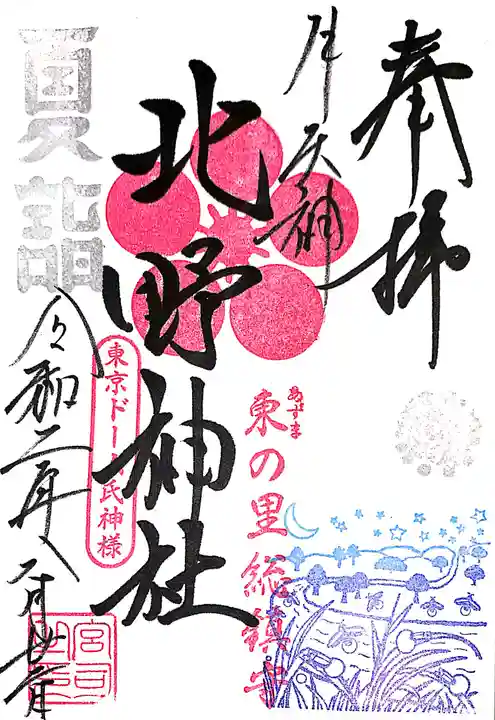 奉拝
牛天神
北野神社
夏詣
令和二年八月廿一日
東京ドーム氏神様
あずま
東の里総鎮守
宮司